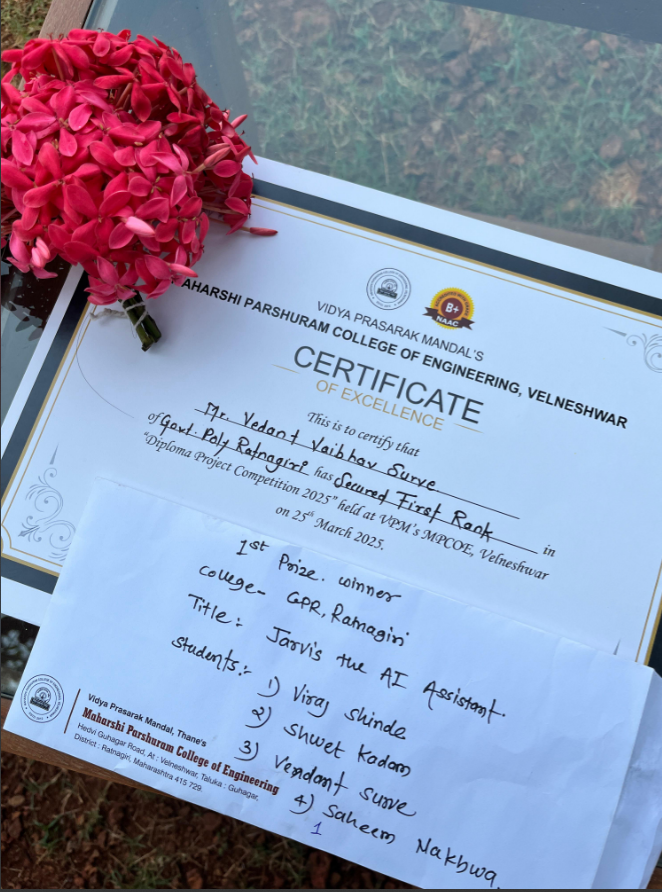 B+
NAAC
VIDYA PRASARAK MANDAL'S
AHARSHI PARSHURAM COLLEGE OF ENGINEERING, VELNESHWAR
CERTIFICATE
OF EXCELLENCE
This is to certify that
Mr. Vedant Vaibhav Surve
of Govt. Poly Ratnagiri has Secured First Rank in
"Diploma Project Competition 2025" held at VPM's MPCOE, Velneshwar
on 25th March 2025.
1st Prize. winner
College- GPR, Ratnagiri
Title: Jarvis the AI Assistant.
Students:-
1) Viraj Shinde
2) Shwet Kadam
3) Vendant Surve
4) Saheem Nakhwa.
1
Vidya Prasarak Mandal, Thane's
Maharshi Parshuram College of Engineering
Hedvi Guhagar Road, At : Velneshwar, Taluka : Guhagar,
District : Ratnagiri, Maharashtra 415 729.